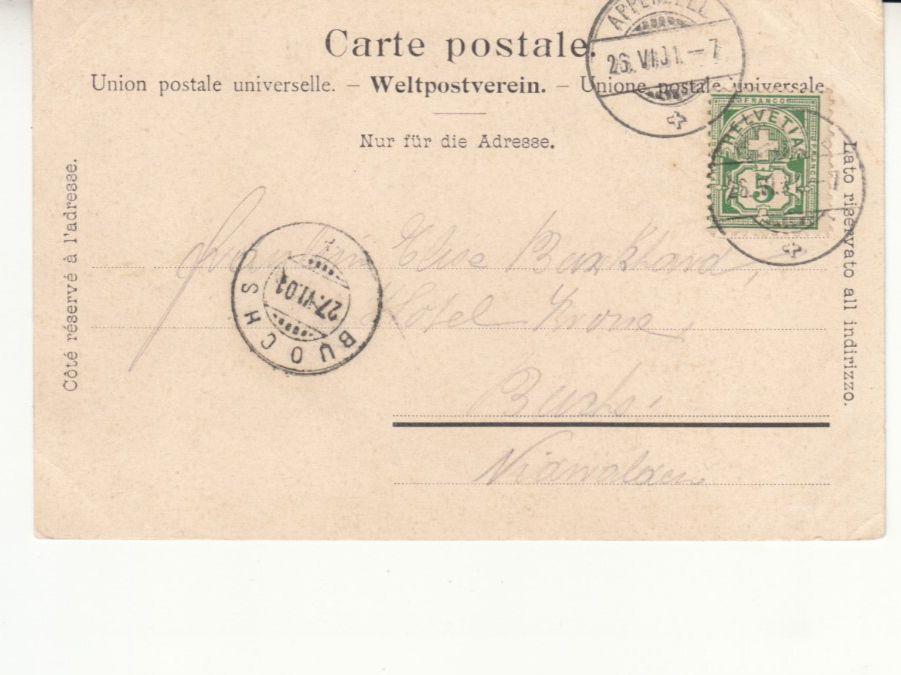 Carte postale.
Union postale universelle. – Weltpostverein. – Unione postale universale
Nur für die Adresse.
Côté réservé à l'adresse.
Lato riservato all indirizzo.
APPENZELL
26. VI. 01. – 7
FRANCO
HELVETIA
5
BUOCHS
27. VI. 01
Fräulein Elise
Hotel Krone,
Nidwalden